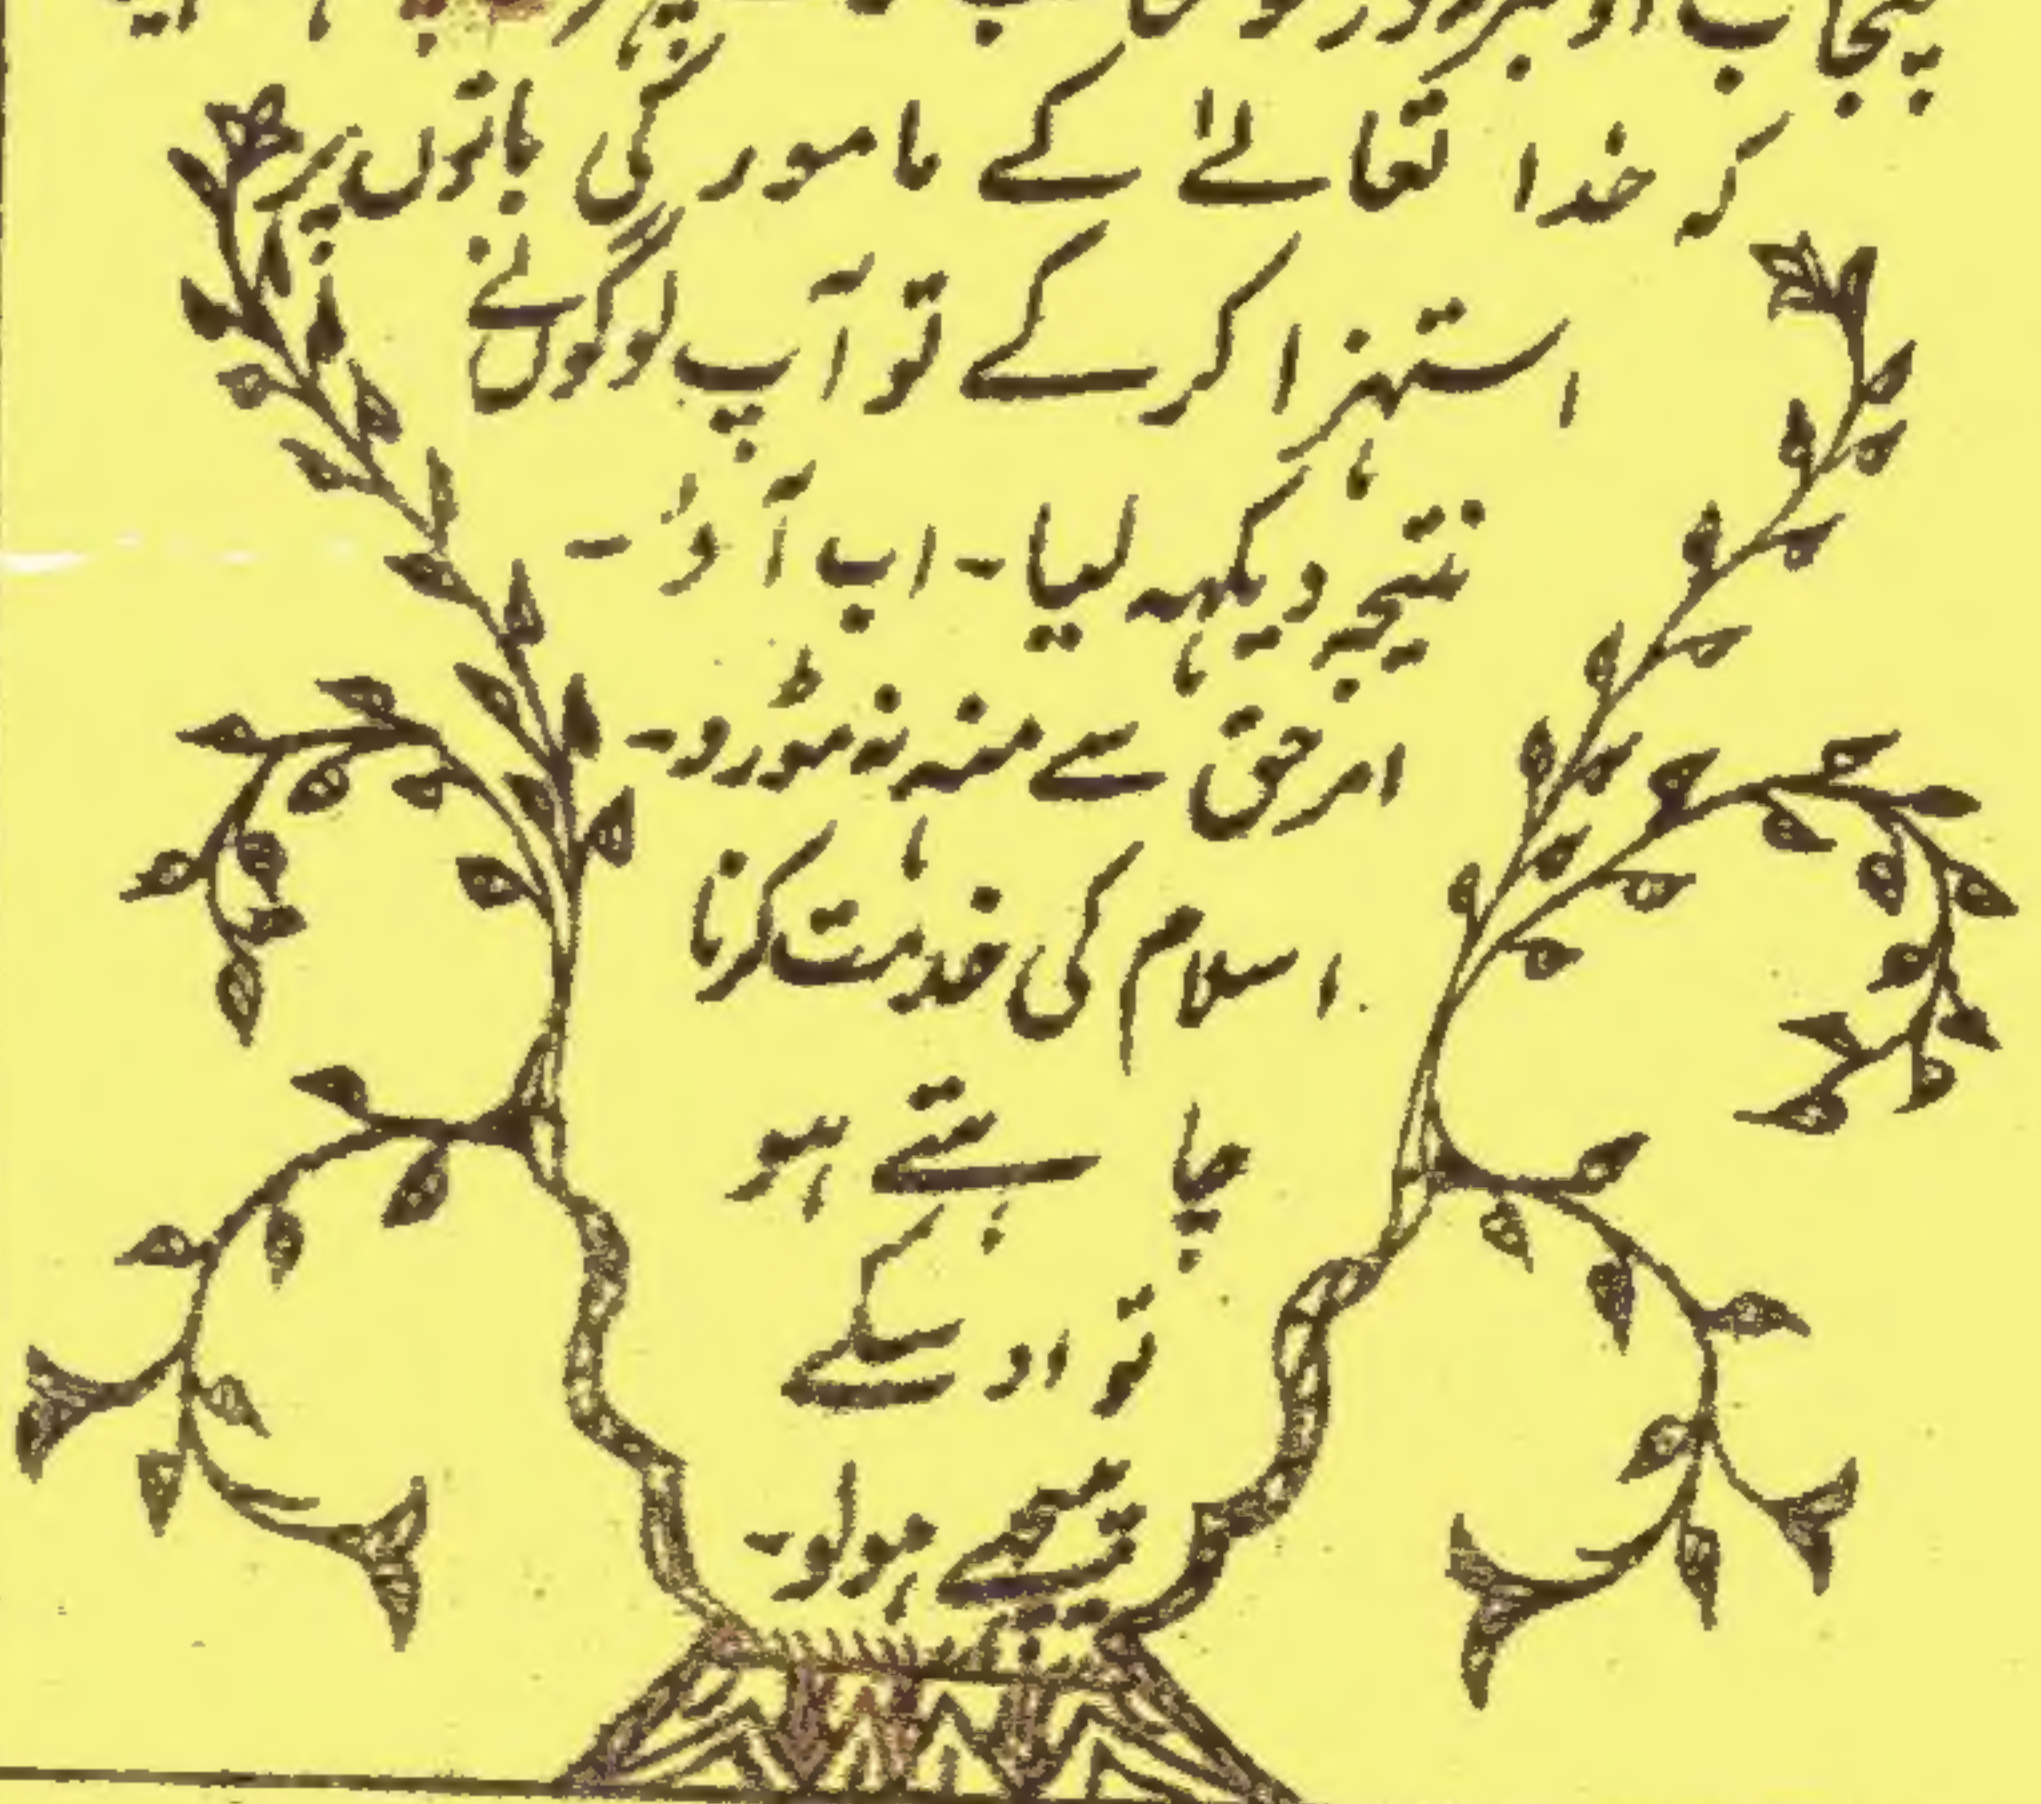 پنجاب
کہ خدا تعالےٰ کے مامور کی باتوں پر
استہزا کرکے تو آپ لوگوں نے
نتیجہ دیکہہ لیا - اب آؤ -
امر حق سے منہ نہ موڑو -
اسلام کی خدمت کرنا
چاہتے ہو
تو اوسکے
پیچھے ہولو -